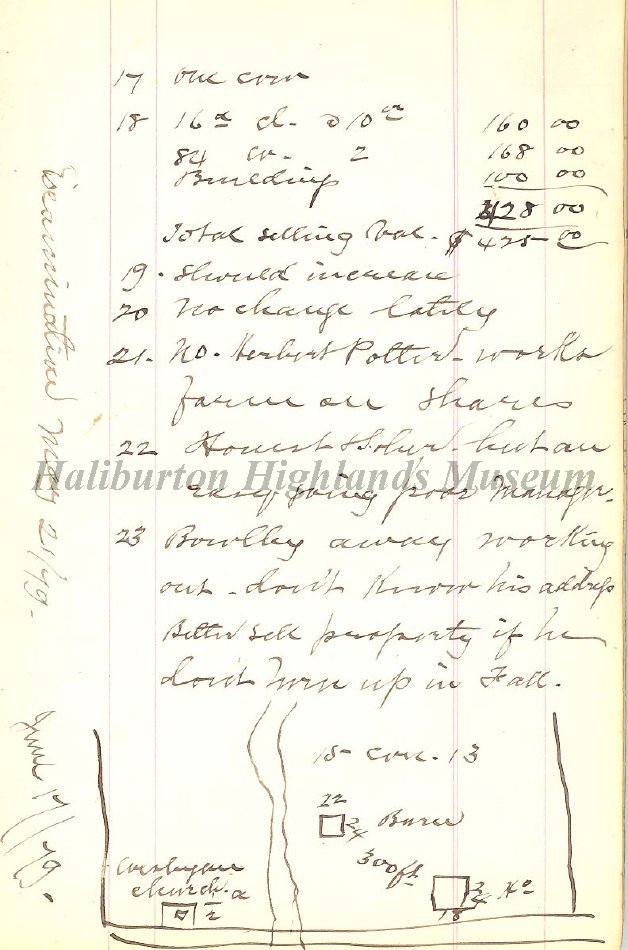 17 one cow
18 16 a cl. @ 10 00 160 00
84 " w. 2 168 00
Buildings 100 00
428 00
Total selling Val. $ 425 00
19. should increase
20 No change lately
21. No. Herbert Potter works
farm on shares
22 Honest & Sober but an
easy going poor Manager.
23 Bowlby away working
out - don't know his address
Better sell property if he
don't turn up in Fall.
Examination May 21/79.
June 17/79.
15 con. 13
22
24 Barn
300 ft
24 Ho
18
Wesleyan
church. a
2
Haliburton Highlands Museum